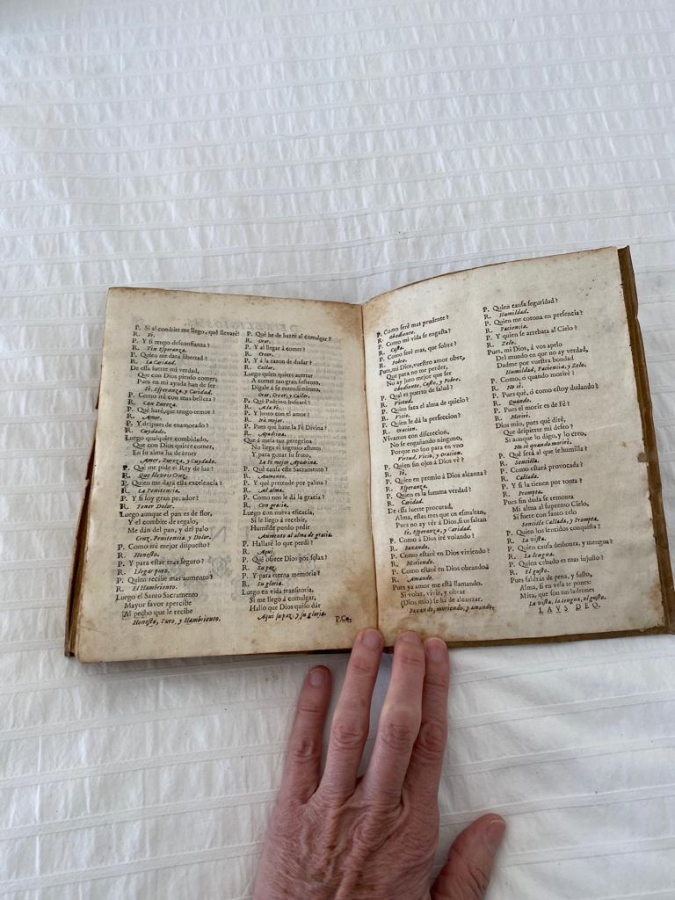 P. Si al combite me llego, què llevarè?
R. Fè.
P. Y si tengo desconfiança?
R. Ten Esperança.
P. Quien me darà libertad?
R. La Caridad.
De essa suerte mi verdad,
Que con Dios pienso comer,
Pues en mi ayuda han de ser
Fè, Esperança, y Caridad.
P. Como irè con mas belleza?
R. Con Pureza.
P. Què harà, que tengo temor?
R. Amor.
P. Y despues de enamorado?
R. Cuydado.
Luego qualquier combidado,
Que con Dios quiere comer,
En su alma ha de tener
Amor, Pureza, y Cuydado.
P. Què me pide el Rey de luz?
R. Cruz.
P. Quien me darà essa excelencia?
R. La Penitencia.
P. Y si soy gran pecador?
R. Tener Dolor.
Luego aunque el pan es de flor,
Y el combite de regalo,
Me dàn del pan, y del palo
Cruz, Penitencia, y Dolor.
P. Como irè mejor dispuesto?
R. Honesto.
P. Y para estar mas seguro?
R. Llegar puro.
P. Quien recibe mas aumento?
R. El Hambriento.
Luego el Santo Sacramento
Mayor favor apercibe
Al pecho que le recibe
Honesto, Puro, y Hambriento.
P. Què he de hazer al comulgar?
R. Orar.
P. Y al llegar à comer?
R. Creer.
P. Y à la razon de dudar?
R. Callar.
Luego quien quiere gustar
A comer tan gran,
Dèsele à
Orar, Creer, y Callar.
P. Què Padrino buscarè?
R. A la Fè.
P. Y junto con el amor?
R. Irà mejor.
P. Pues què hace la Fè Divina?
R. Apadrina.
Que à mesa tan peregrina
No llega el ingenio
Y para gustar su fruto,
La Fè mejor Apadrina.
P. Què causa este Sacramento?
R. Aumento.
P. Y què pretende por palma?
R. Al alma.
P. Como nos le dà la gracia?
R. Con gracia.
Luego con nueva eficacia,
Si le llego à recibir,
Humilde puedo pedir
Aumento al alma de gracia.
P. Hallarè lo que perdì?
R. Aqui.
P. Què ofrece Dios por solaz?
R. Su paz.
P. Y para eterna memoria?
R. Su gloria.
Luego en vida transitoria,
Si me llego à comulgar,
Hallo que Dios quiso dàr
Aqui su paz, y su gloria.
P. Como serè mas prudente?
R. Obediente.
P. Como mi vida se engasta?
R. Casta.
P. Como serè mas, que sobre?
R. Pobre.
Pues mi Dios, vuestro amor obre,
Que para no me perder,
No ay joya mejor que ser
Obediente, Casto, y Pobre.
P. Qual es puerto de salud?
R. Virtud.
P. Quien serà el alma de quicio?
R. Vicio.
P. Quien le dà la perfeccion?
R. Oracion.
Vivamos con discrecion,
No se engañando ninguno,
Porque no son para en uno
Virtud, Vicio, y Oracion.
P. Quien sin ojos à Dios vè?
R. Fè.
P. Quien en premio à Dios alcança?
R. Esperança.
P. Quien es la summa verdad?
R. Caridad.
De essa suerte procurad,
Alma, essas tres que os esmaltan,
Pues no ay vèr à Dios, si os faltan
Fè, Esperança, y Caridad.
P. Como à Dios irè volando?
R. Buscando.
P. Como estarè en Dios viviendo?
R. Muriendo.
P. Como estarè en Dios obrando?
R. Amando.
Pues ya amor me està llamando,
Si volar, vivir, y obrar
(Dios mio) se ha de alcançar,
Buscando, muriendo, y amando.
P. Quien causa seguridad?
R. Humildad.
P. Quien me corona en presencia?
R. Paciencia.
P. Y quien se arrebata al Cielo?
R. Zelo.
Pues, mi Dios, à vos apelo
Del mundo en que no ay verdad,
Dadme por vuestra bondad
Humildad, Paciencia, y Zelo.
P. Como, o quando morirè?
R. No sè.
P. Pues què, ò como estoy dudando?
R. Quando.
P. Pues el morir es de Fè?
R. Morirè.
Dios mio, pues què dirè,
Que despierte mi deseo?
Si aunque lo digo, y lo creo,
No sè quando morirè.
P. Què serà al que le humilla?
R. Sencilla.
P. Como estarà provocada?
R. Callada.
P. Y si la tienen por tonta?
R. Prompta.
Pues sin duda se remonta
Mi alma al supremo Cielo,
Si fuere con santo zelo
Sencilla, Callada, y Prompta.
P. Quien los sentidos conquista?
R. La vista.
P. Quien causa deshonra, y mengua?
R. La lengua.
P. Quien cebado es mas injusto?
R. El gusto.
Pues saldràs de pena, y susto,
Alma, si en vela te ponen:
Mira, que son tus ladrones
La vista, la lengua, el gusto.
LAUS DEO.